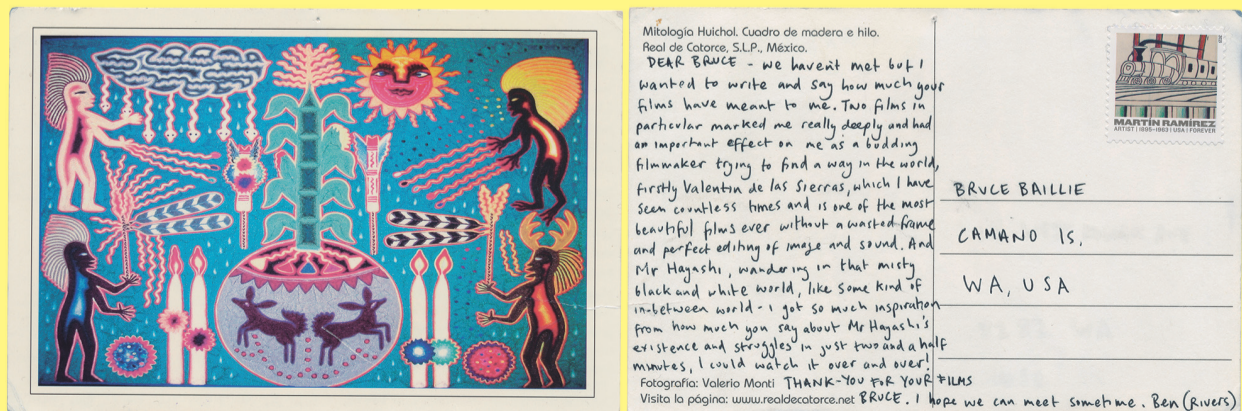 Mitología Huichol. Cuadro de madera e hilo.
Real de Catorce, S.L.P., México.
DEAR BRUCE - we havent met but I
wanted to write and say how much your
films have meant to me. Two films in
particular marked me really deeply and had
an important effect on me as a budding
filmmaker trying to find a way in the world,
firstly Valentin de las Sierras, which I have
seen countless times and is one of the most
beautiful films ever without a wasted frame
and perfect editing of image and sound. And
Mr Hayashi, wandering in that misty
black and white world, like some kind of
in-between world - I got so much inspiration
from how much you say about Mr Hayashi's
existence and struggles in just two and a half
minutes, I could watch it over and over!
Fotografía: Valerio Monti THANK-YOU FOR YOUR FILMS
Visita la página: www.realdecatorce.net BRUCE. I hope we can meet sometime. Ben (Rivers)
MARTÍN RAMÍREZ
ARTIST | 1895–1963 | USA | FOREVER
BRUCE BAILLIE
CAMANO IS,
WA, USA